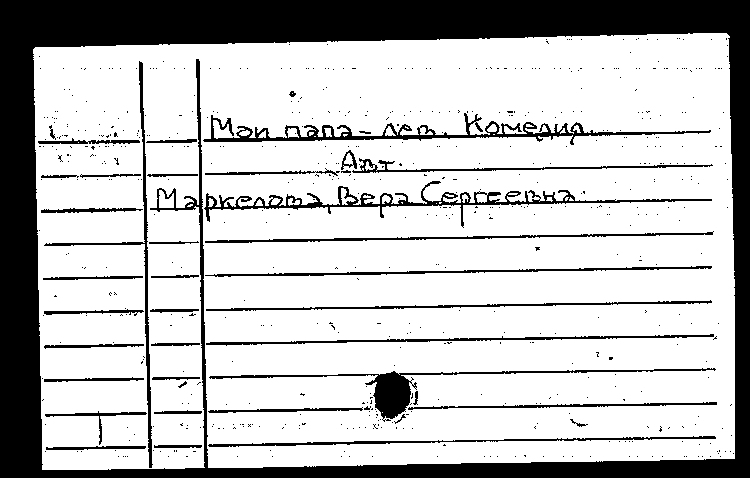 Мой папа - лев. Комедия.
Авт.
Маркелова, Вера Сергеевна